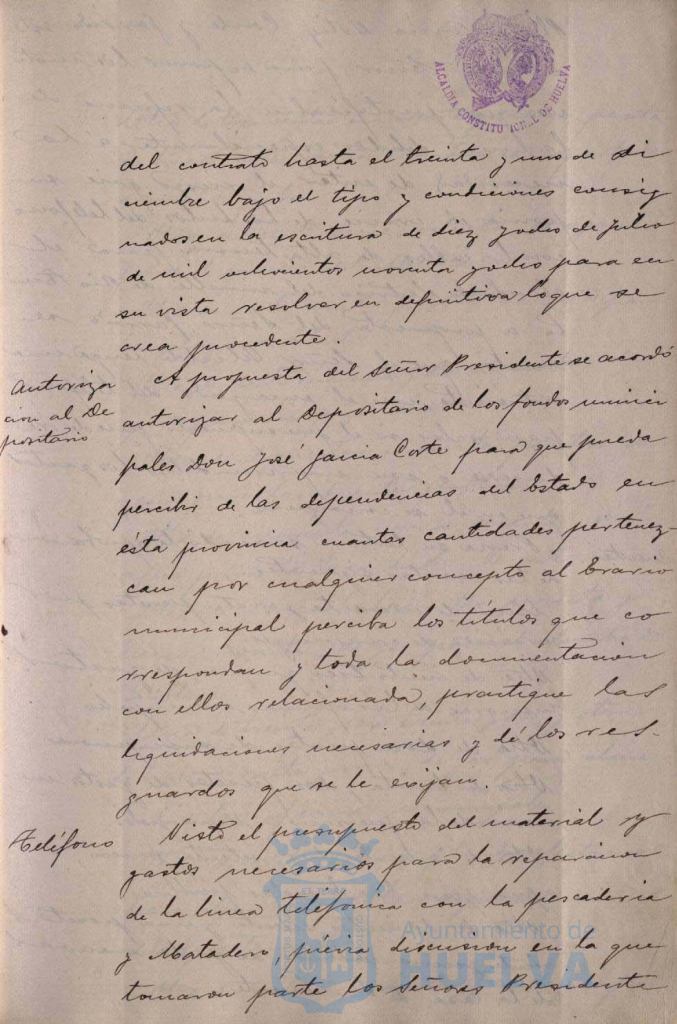 ALCALDIA CONSTITUCIONAL DE HUELVA
del contrato hasta el treinta y uno de di
ciembre bajo el tipo y condiciones consig
nados en la escritura de diez y ocho de Julio
de mil ochocientos noventa y ocho para en
su vista resolver en definitiva lo que se
crea procedente.
Autoriza
cion al De
positario
A propuesta del Señor Presidente se acordó
autorizar al Depositario de los fondos munici
pales Don José Garcia Corte para que pueda
percibir de las dependencias del Estado en
ésta provincia cuantas cantidades pertenez-
can por cualquier concepto al Erario
municipal perciba los títulos que co
rrespondan y toda la documentacion
con ellos relacionada, practique las
liquidaciones necesarias y dé los res-
guardos que se le exijan.
Teléfono
Visto el presupuesto del material y
gastos necesarios para la reparacion
de la linea telefonica con la pescaderia
y Matadero, prévia discusion en la que
tomaron parte los Señores Presidente
Ayuntamiento de
HUELVA